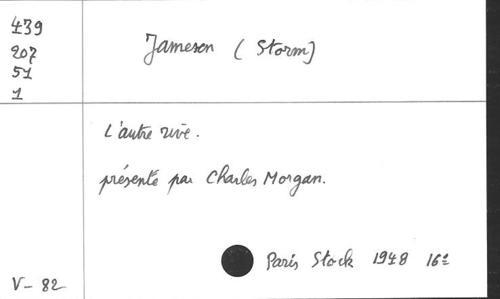 439
207
51
1
Jameson (Storm)
L'autre rive.
présenté par Charles Morgan.
Paris Stock 1948 16º
V-82